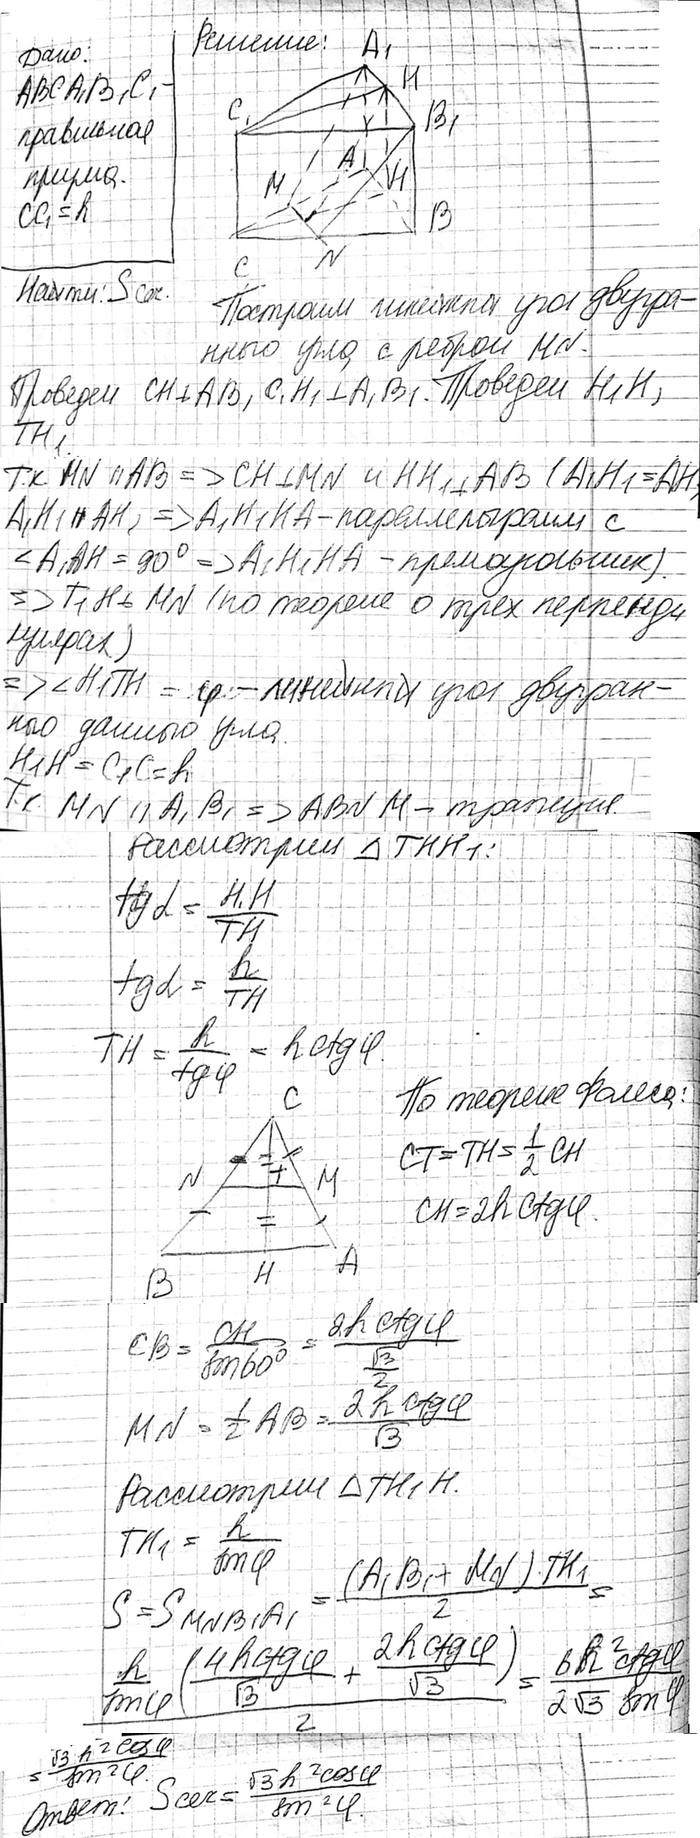 Дано:
ABCA₁B₁C₁ -
правильная
призма.
CC₁ = h
Найти: S сеч.
Решение:
A₁
H
C₁
B₁
A
M
H
B
C
N
Построим линейный угол двугра-
нного угла с ребром MN.
Проведем CH⊥AB, C₁H₁⊥A₁B₁. Проведем H₁H,
TH₁.
Т.к MN || AB => CH⊥MN и HH₁⊥AB (A₁H₁=AH,
A₁H₁ || AH, => A₁H₁HA - параллелограмм с
<A₁AH = 90° => A₁H₁HA - прямоугольник).
=> T₁H⊥MN (по теореме о трех перпенди
кулярах)
=> <H₁TH = φ - линейный угол двугран-
ного данного угла.
H₁H = C₁C = h
Т.к. MN || A₁B₁ => ABNM - трапеция.
Рассмотрим △THH₁:
tgα = H₁H/TH
tgα = h/TH
TH = h/tgφ = h ctgφ.
C
N
T
M
B
H
A
По теореме Фалеса:
CT = TH = 1/2 CH
CH = 2h ctgφ.
CB = CH/sin60° = 2h ctgφ/(√3/2)
MN = 1/2 AB = 2h ctgφ/√3
Рассмотрим △TH₁H.
TH₁ = h/sinφ
S = S MNB₁A₁ = (A₁B₁ + MN)·TH₁/2 =
h/sinφ (4h ctgφ/√3 + 2h ctgφ/√3)/2 = 6h² ctgφ/2√3 sinφ
= √3 h² cosφ/sin²φ.
Ответ: S сеч = √3 h² cosφ/sin²φ.